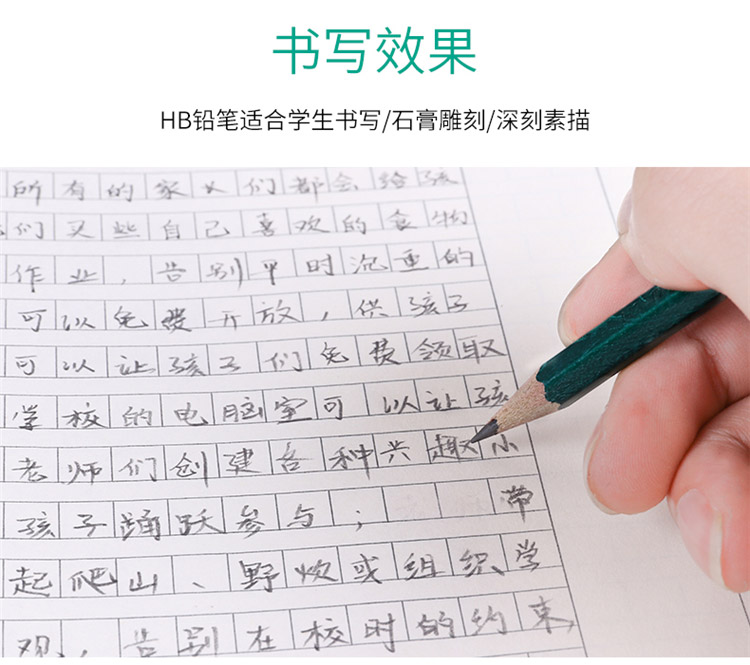 书写效果
HB铅笔适合学生书写/石膏雕刻/深刻素描
所有的家长们都会给孩
们买些自己喜欢的食物
作业，告别平时沉重的
可以免费开放，供孩子
可以让孩子们免费领取
学校的电脑室可以让孩
老师们创建各种兴趣小
孩子踊跃参与； 带
起爬山、野炊或组织学
观，告别在校时的约束，